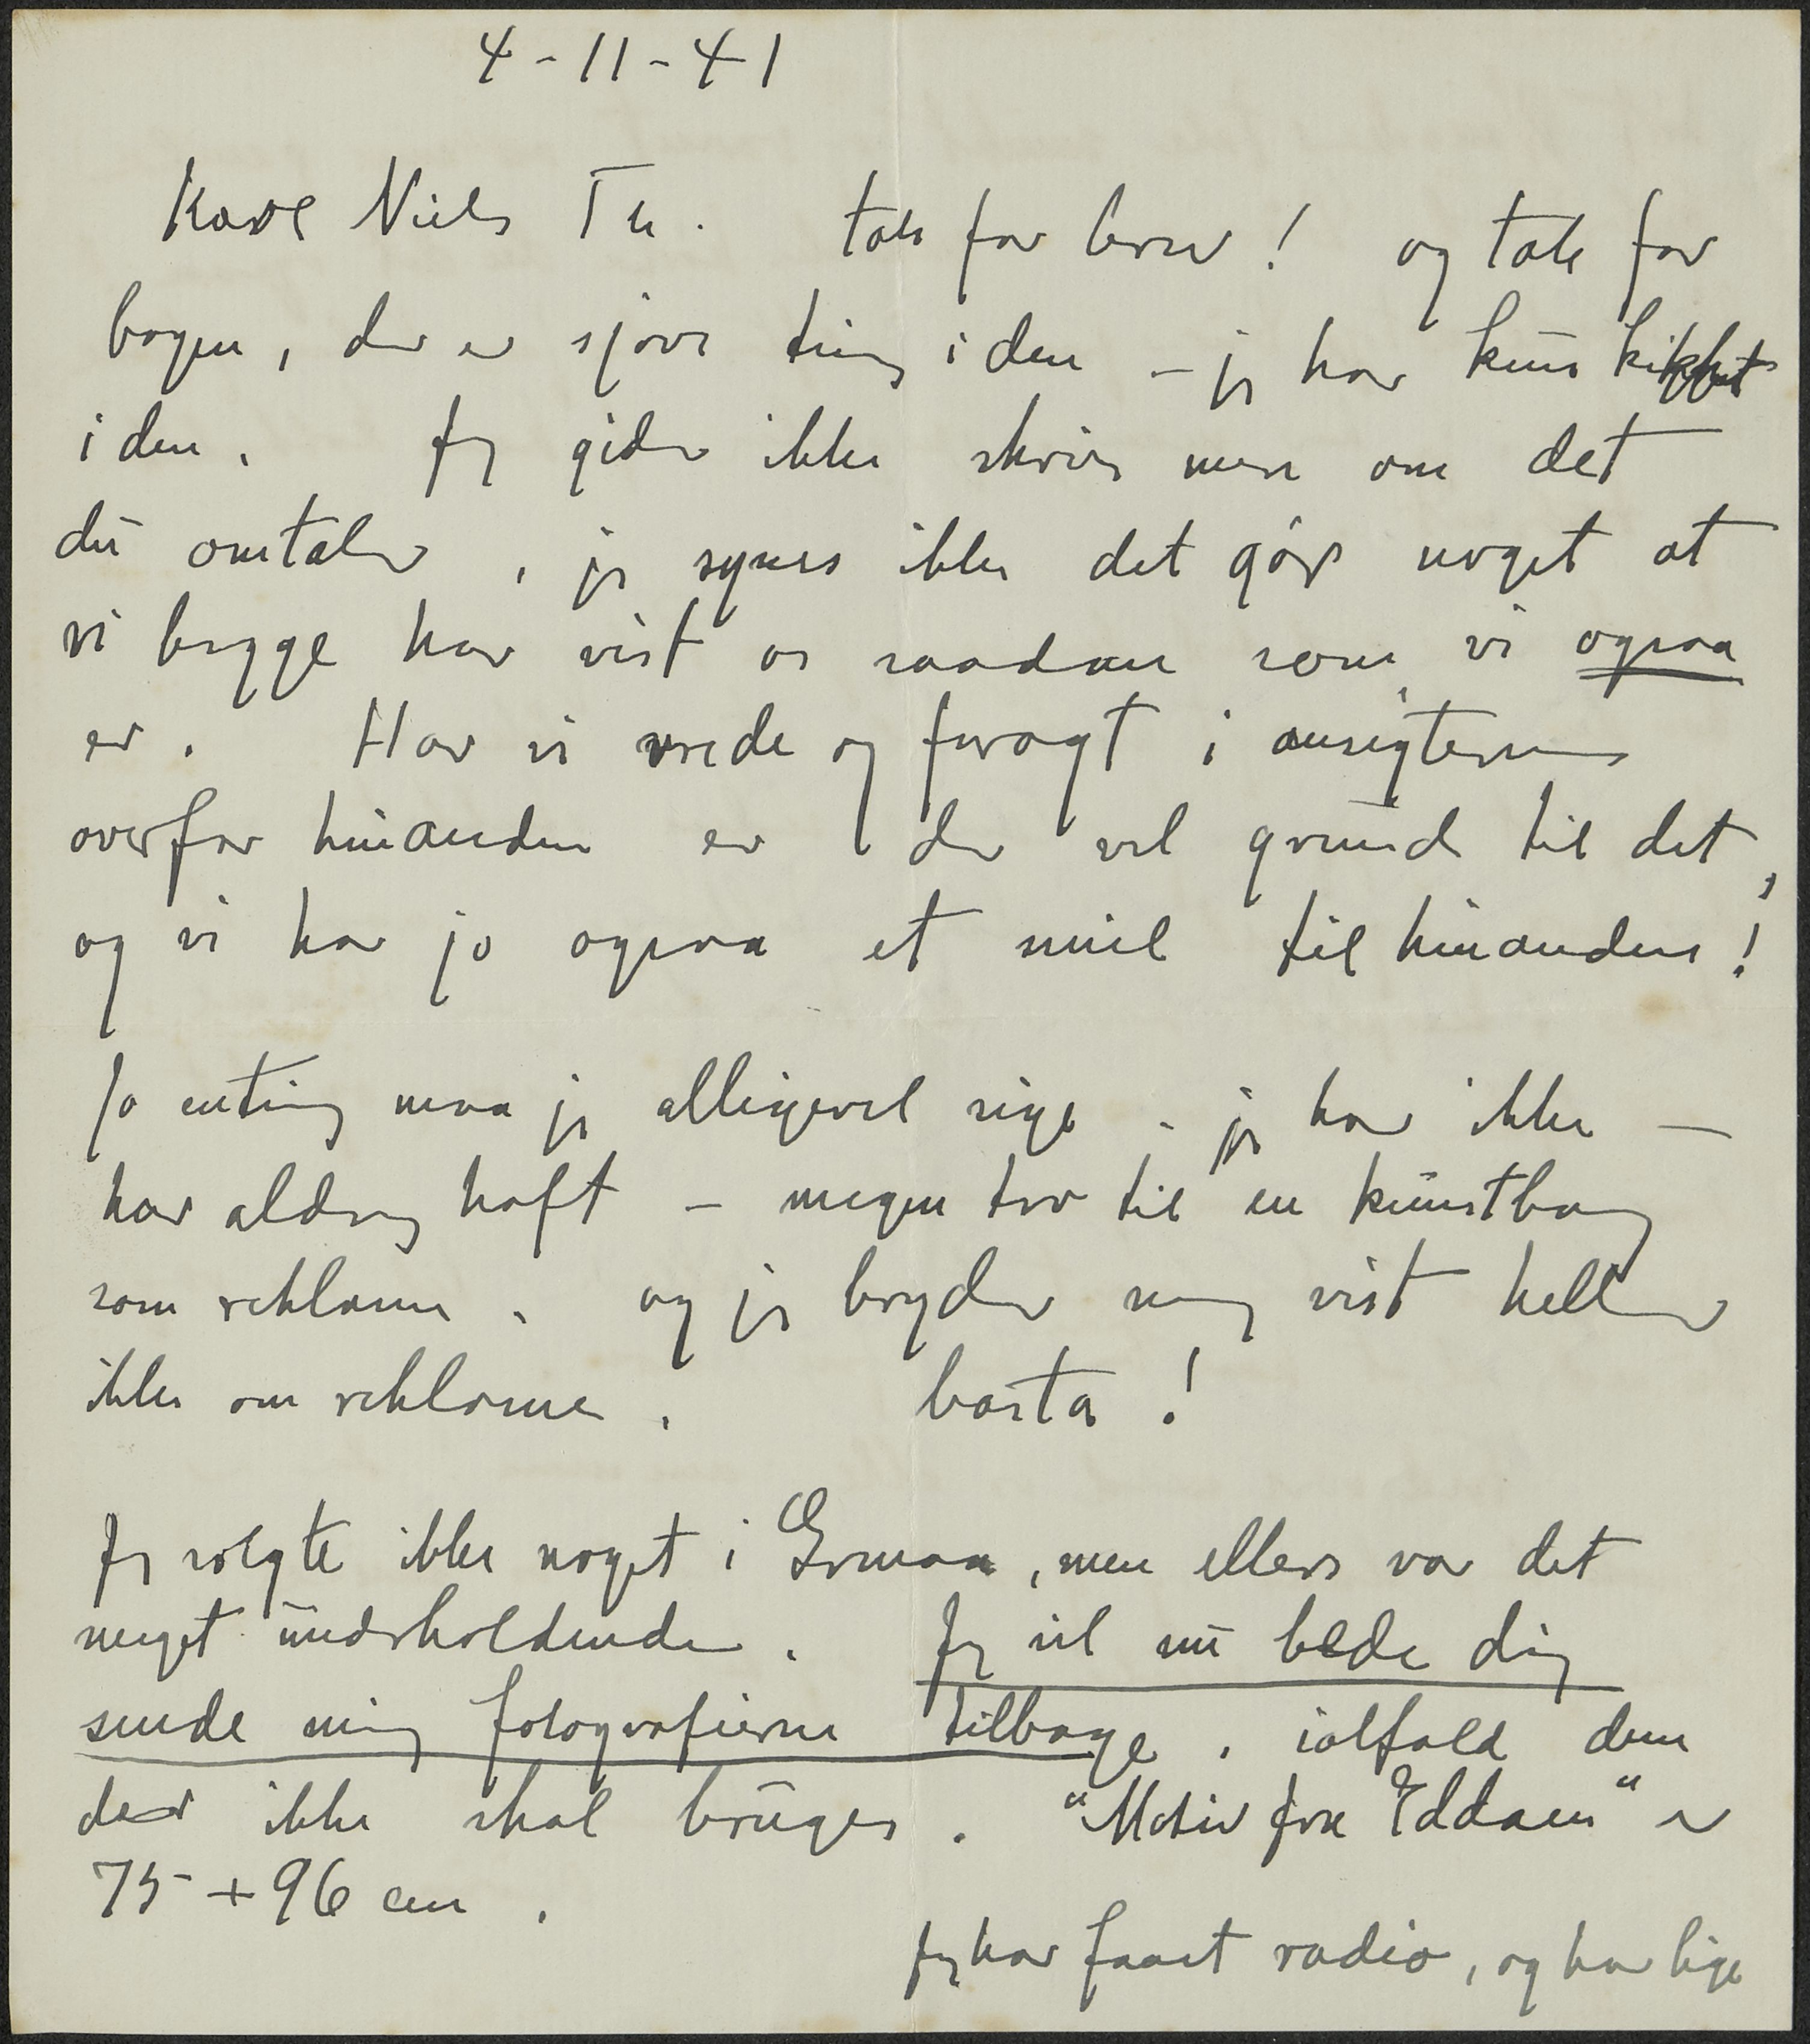 4-11-41
Kære Niels Th. tak for brev! og tak for
bogen, der er sjove ting i den - jeg har kun kikket
i den. Jeg gider ikke skrive mere om det
du omtaler, jeg synes ikke det gør noget at
vi begge har vist os saadan som vi ogsaa
er. Har vi vrede og foragt i ansigterne
overfor hinanden er der vel grund til det,
og vi har jo ogsaa et smil til hinanden!
Jo enting maa jeg alligevel sige - jeg har ikke -
har aldrig haft - megen tro til en kunstbog
som reklame. og jeg bryder mig vist heller
ikke om reklame. basta!
Jeg solgte ikke noget i , men ellers var det
meget underholdende. Jeg vil nu bede dig
sende mig fotografierne tilbage. ialfald dem
der ikke skal bruges. "Motiv fra Eddaen" er
75 + 96 cm.
Jeg har faaet radio, og har lige